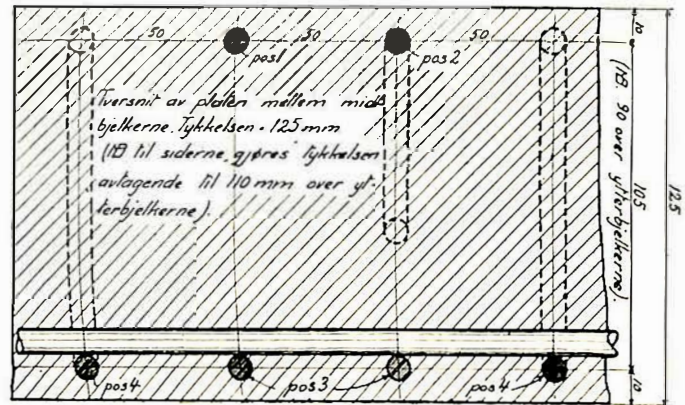 50
50
50
10
pos1
pos2
Tversnit av platen mellem midt-
bjelkerne. Tykkelsen = 125 mm
(NB til siderne gjøres tykkelsen
avtagende til 110 mm over yt-
terbjelkerne).
(NB. 90 over ytterbjelkerne).
105
125
pos4
pos3
pos4
10